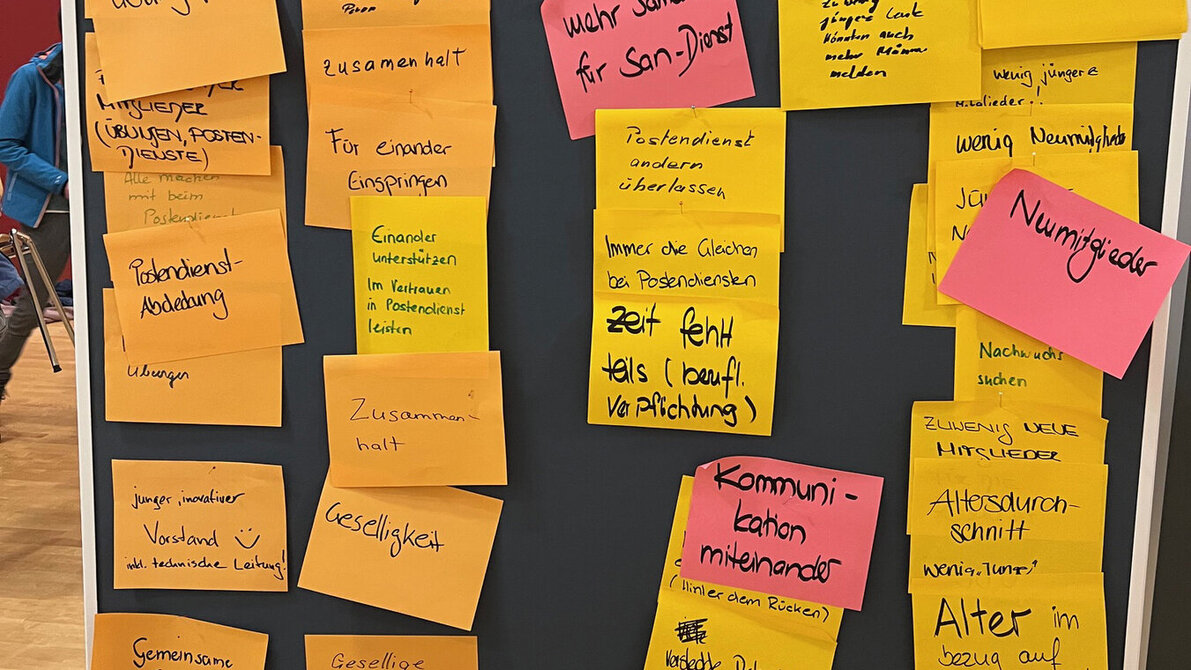 MITGLIEDER
(ÜBUNGEN, POSTEN-
DIENSTE)
Alle machen
mit beim
Postendienst
Postendienst-
Abdeckung
Übungen
junger, inovativer
Vorstand
inkl. technische Leitung!
Gemeinsame
Zusamenhalt
Für einander
Einspringen
Einander
unterstützen
Im Vertrauen
in Postendienst
leisten
Zusammen-
halt
Geselligkeit
Gesellige
mehr
für San-Dienst
Postendienst
andern
überlassen
Immer die Gleichen
bei Postendiensten
Zeit fehlt
teils (berufl.
Verpflichtung)
Kommuni-
kation
miteinander
(Hinter dem Rücken)
jüngere Leute
könnten auch
mehr
melden
wenig jüngere
Mitglieder!
wenig Neumitglieder
Neumitglieder
Nachwuchs
suchen
ZUWENIG NEUE
MITGLIEDER
Altersdurch-
schnitt
wenig "Junge"
Alter im
bezug auf